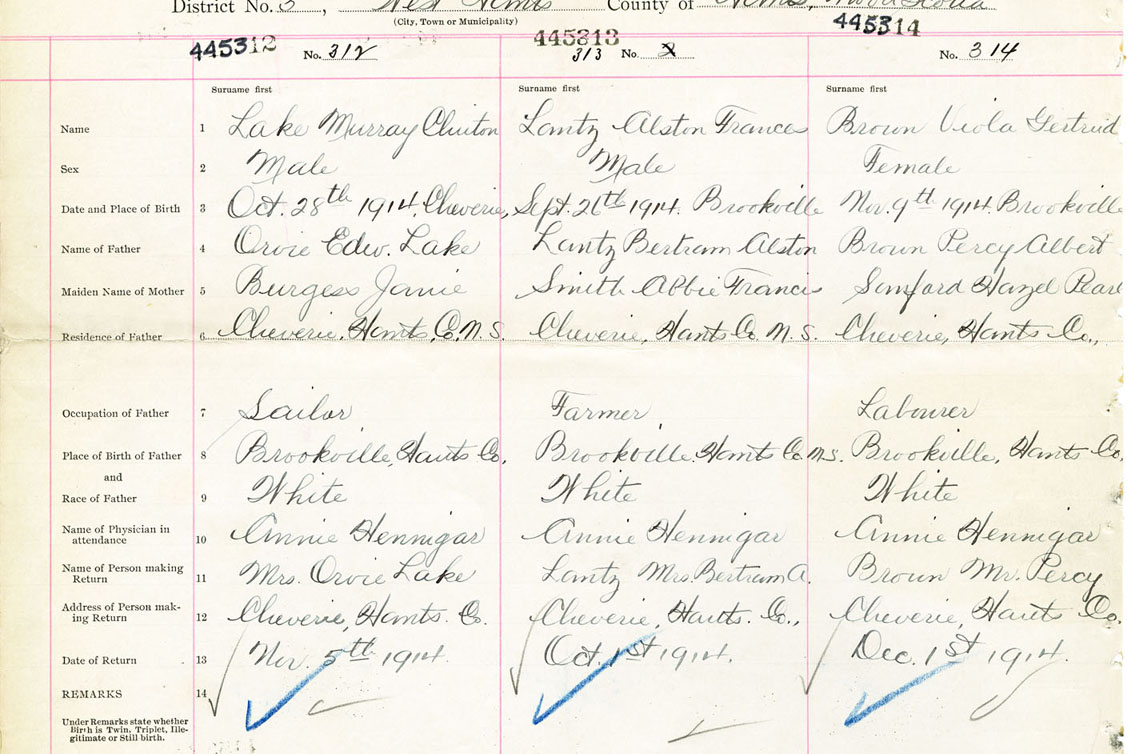 District No. 3, West Hants County of Hants, Nova Scotia
(City, Town or Municipality)
445312 445313 445314
No. 312 313 No. No. 314
Surname first Surname first Surname first
Name 1 Lake Murray Clinton Lantz Alston Frances Brown Viola Gertrud
Sex 2 Male Male Female
Date and Place of Birth 3 Oct. 28th 1914, Cheverie, Sept. 26th 1914. Brookville Nov. 9th 1914. Brookville
Name of Father 4 Orvie Edw. Lake Lantz Bertram Alston Brown Percy Albert
Maiden Name of Mother 5 Burgess Janie Smith Abbie Francis Sanford Hazel Pearl
Residence of Father 6 Cheverie, Hants, Co, N.S. Cheverie, Hants Co. N.S. Cheverie, Hants Co.,
Occupation of Father 7 Sailor Farmer Labourer
Place of Birth of Father 8 Brookville, Hants Co. Brookville. Hants Co. N.S. Brookville, Hants Co.
and
Race of Father 9 White White White
Name of Physician in
attendance 10 Annie Hennigar Annie Hennigar Annie Hennigar
Name of Person making
Return 11 Mrs. Orvie Lake Lantz Mrs. Bertram A. Brown Mr. Percy
Address of Person mak-
ing Return 12 Cheverie, Hants. Co. Cheverie, Hants. Co., Cheverie, Hants Co.
Date of Return 13 Nov. 5th 1914. Oct. 1st 1914. Dec. 1st 1914.
REMARKS 14
Under Remarks state whether
Birth is Twin, Triplet, Ille-
gitimate or Still birth.